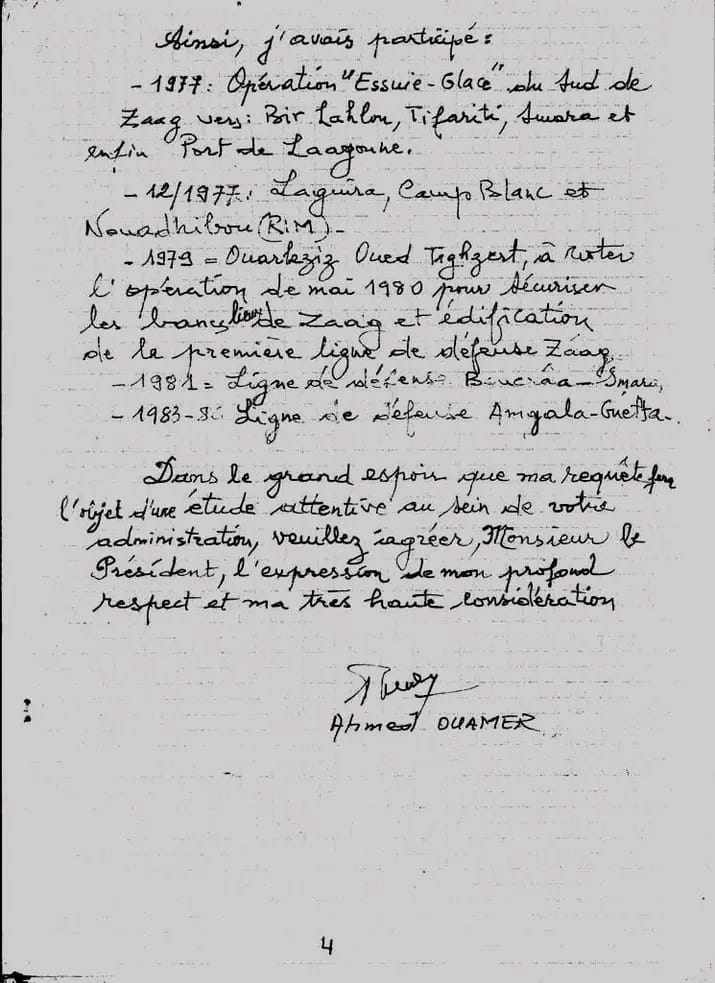 Ainsi, j'avais participé :
- 1977 : Opération "Essuie-Glace" du Sud de
Zaag vers : Bir Lahlou, Tifariti, Smara et
enfin Port de Laayoune.
- 12/1977 : Laguira, Camp Blanc et
Nouadhibou (RIM) -
- 1979 = Ouarkziz Oued Tighzert, à noter
l'opération de mai 1980 pour sécuriser
les banclieux de Zaag et édification
de la première ligne de défense Zaag,
- 1981 = Ligne de défense Boucrâa - Smara,
- 1983-8 : Ligne de défense Amgala-Guelta -
Dans le grand espoir que ma requête fera
l'objet d'une étude attentive au sein de votre
administration, veuillez agréer, Monsieur le
Président, l'expression de mon profond
respect et ma très haute considération
Ahmed OUAMER
4